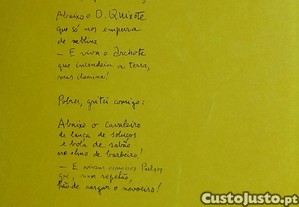 Abaixo o D. Quixote
que só nos empurra
de neblina
— E viva o Archote
que incendeia a terra,
mas ilumina!
Pobres, gritai comigo:
Abaixo o cavaleiro
de lança de soluços
e bola de sabão
no elmo de barbeiro!
— E vivam
que, num repelão,
hão de rasgar o nevoeiro!
CustoJusto.pt